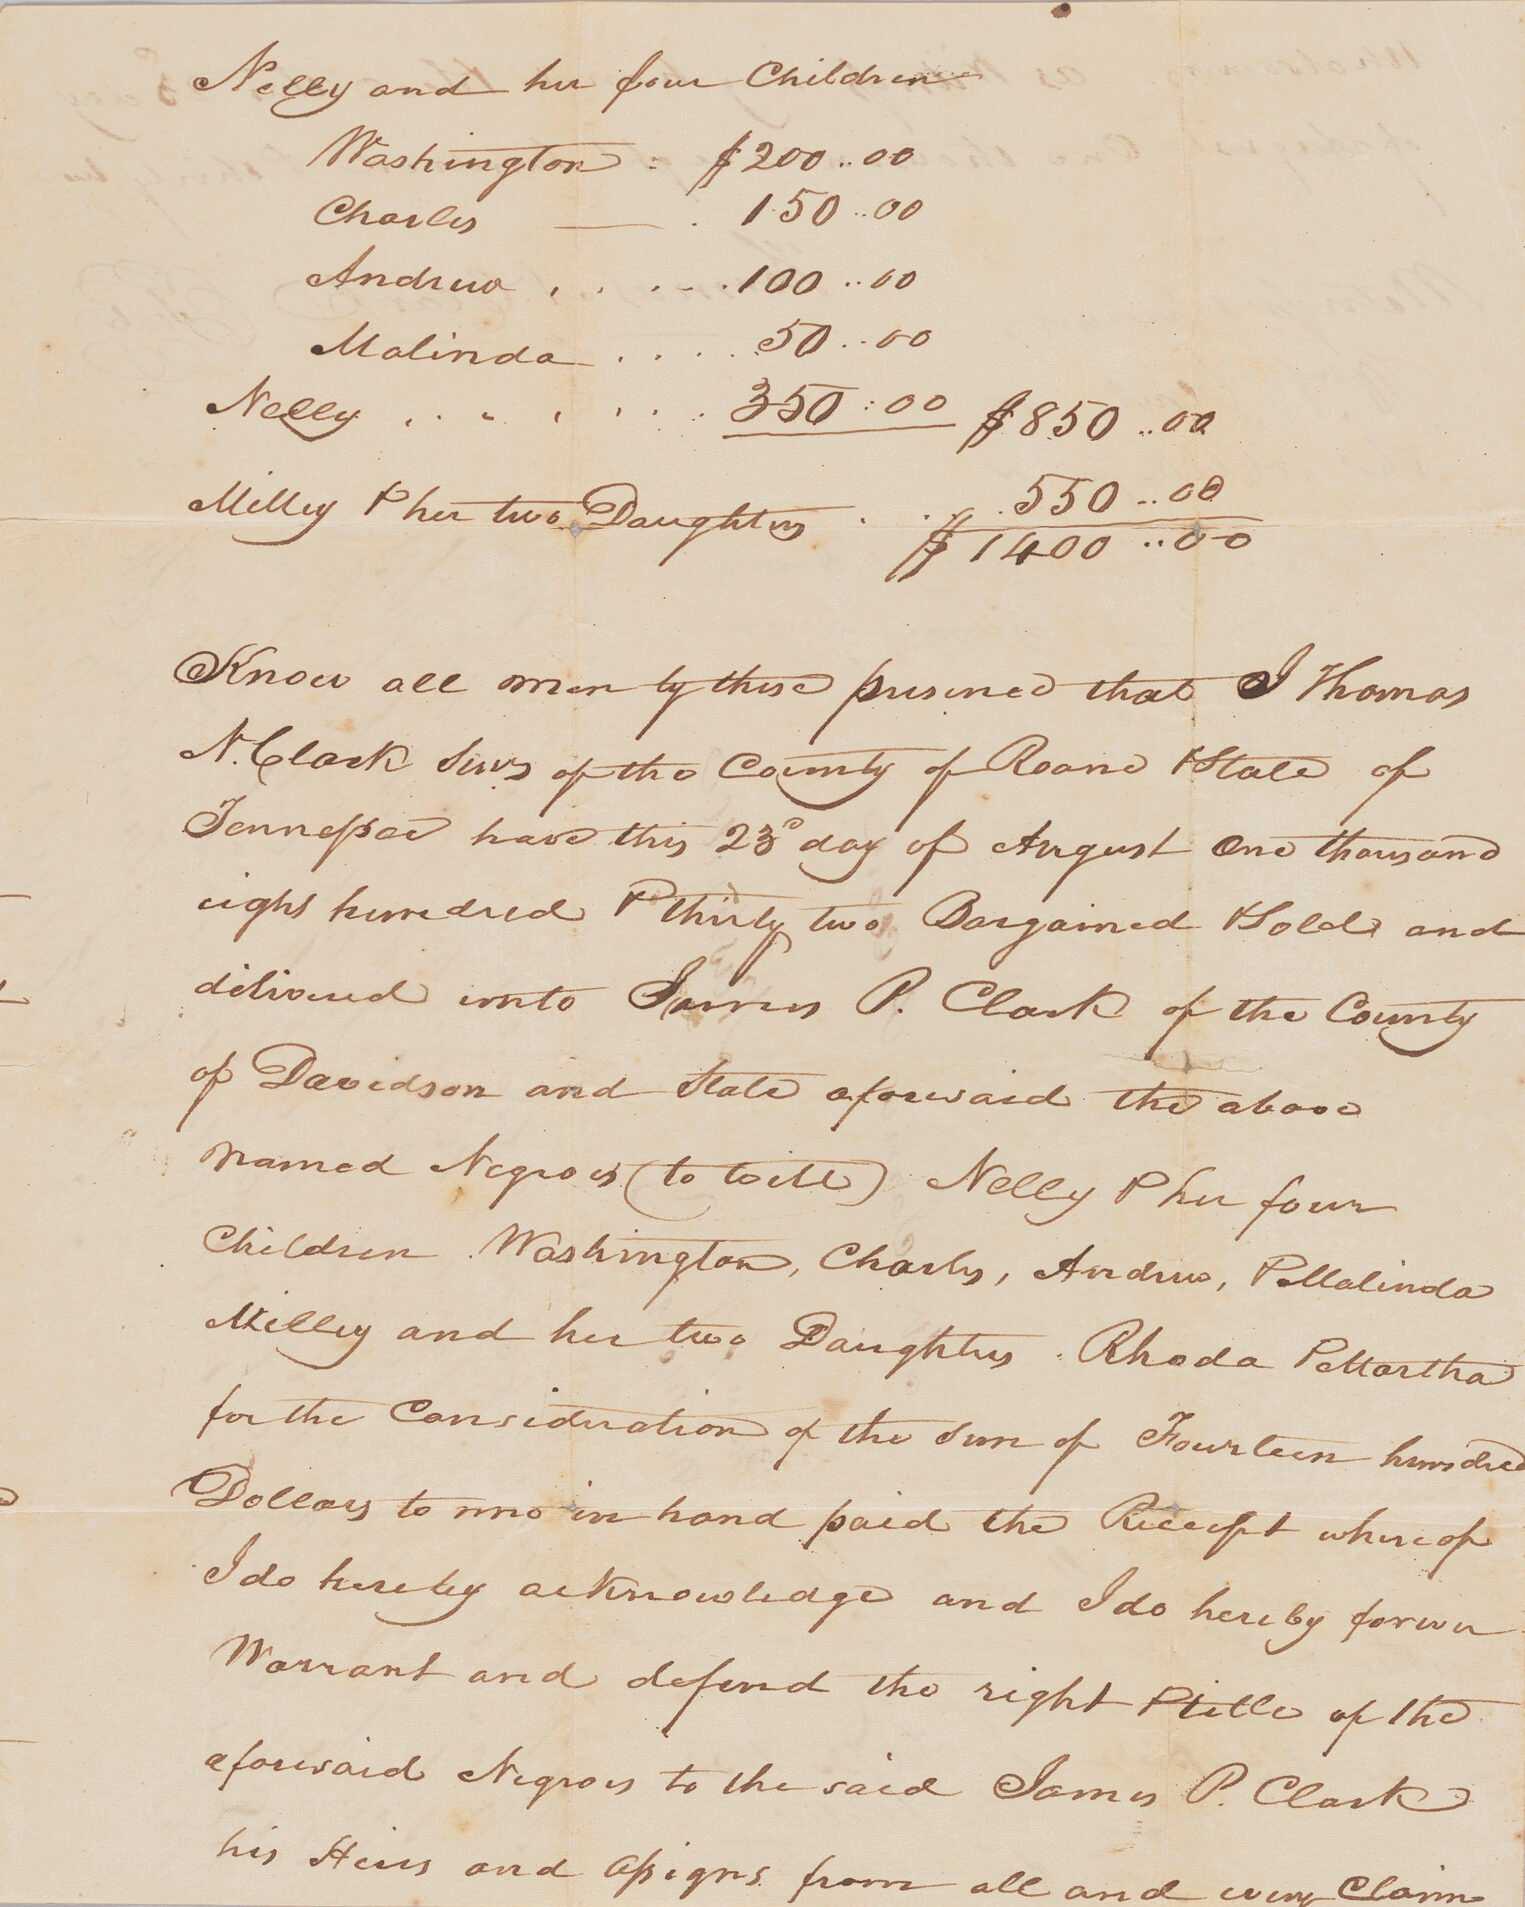 Nelly and her four Children
Washington : $200..00
Charles — . 150..00
Andrew . . . - . 100..00
Malinda . . . . 50..00
Nelly . . . . . . 350:00 $850..00
Milley & her two Daughters . . . 550..00
$1400..00
Know all men by these presence that I Thomas
N. Clark Senr of the County of Roane & State of
Tennessee have this 23d day of August One thousand
eight hundred & thirty two Bargained & Sold and
delivered unto James P. Clark of the County
of Davidson and State aforesaid the above
named Negroes (to witt) Nelly & her four
Children Washington, Charles, Andrew, & Malinda
Milley and her two Daughters Rhoda & Martha
for the Consideration of the Sum of Fourteen hundred
Dollars to me in hand paid the Receipt whereof
I do hereby acknowledge and I do hereby forever
Warrant and defend the right & title of the
aforesaid Negroes to the said James P. Clark
his Heirs and Assigns from all and every Claim